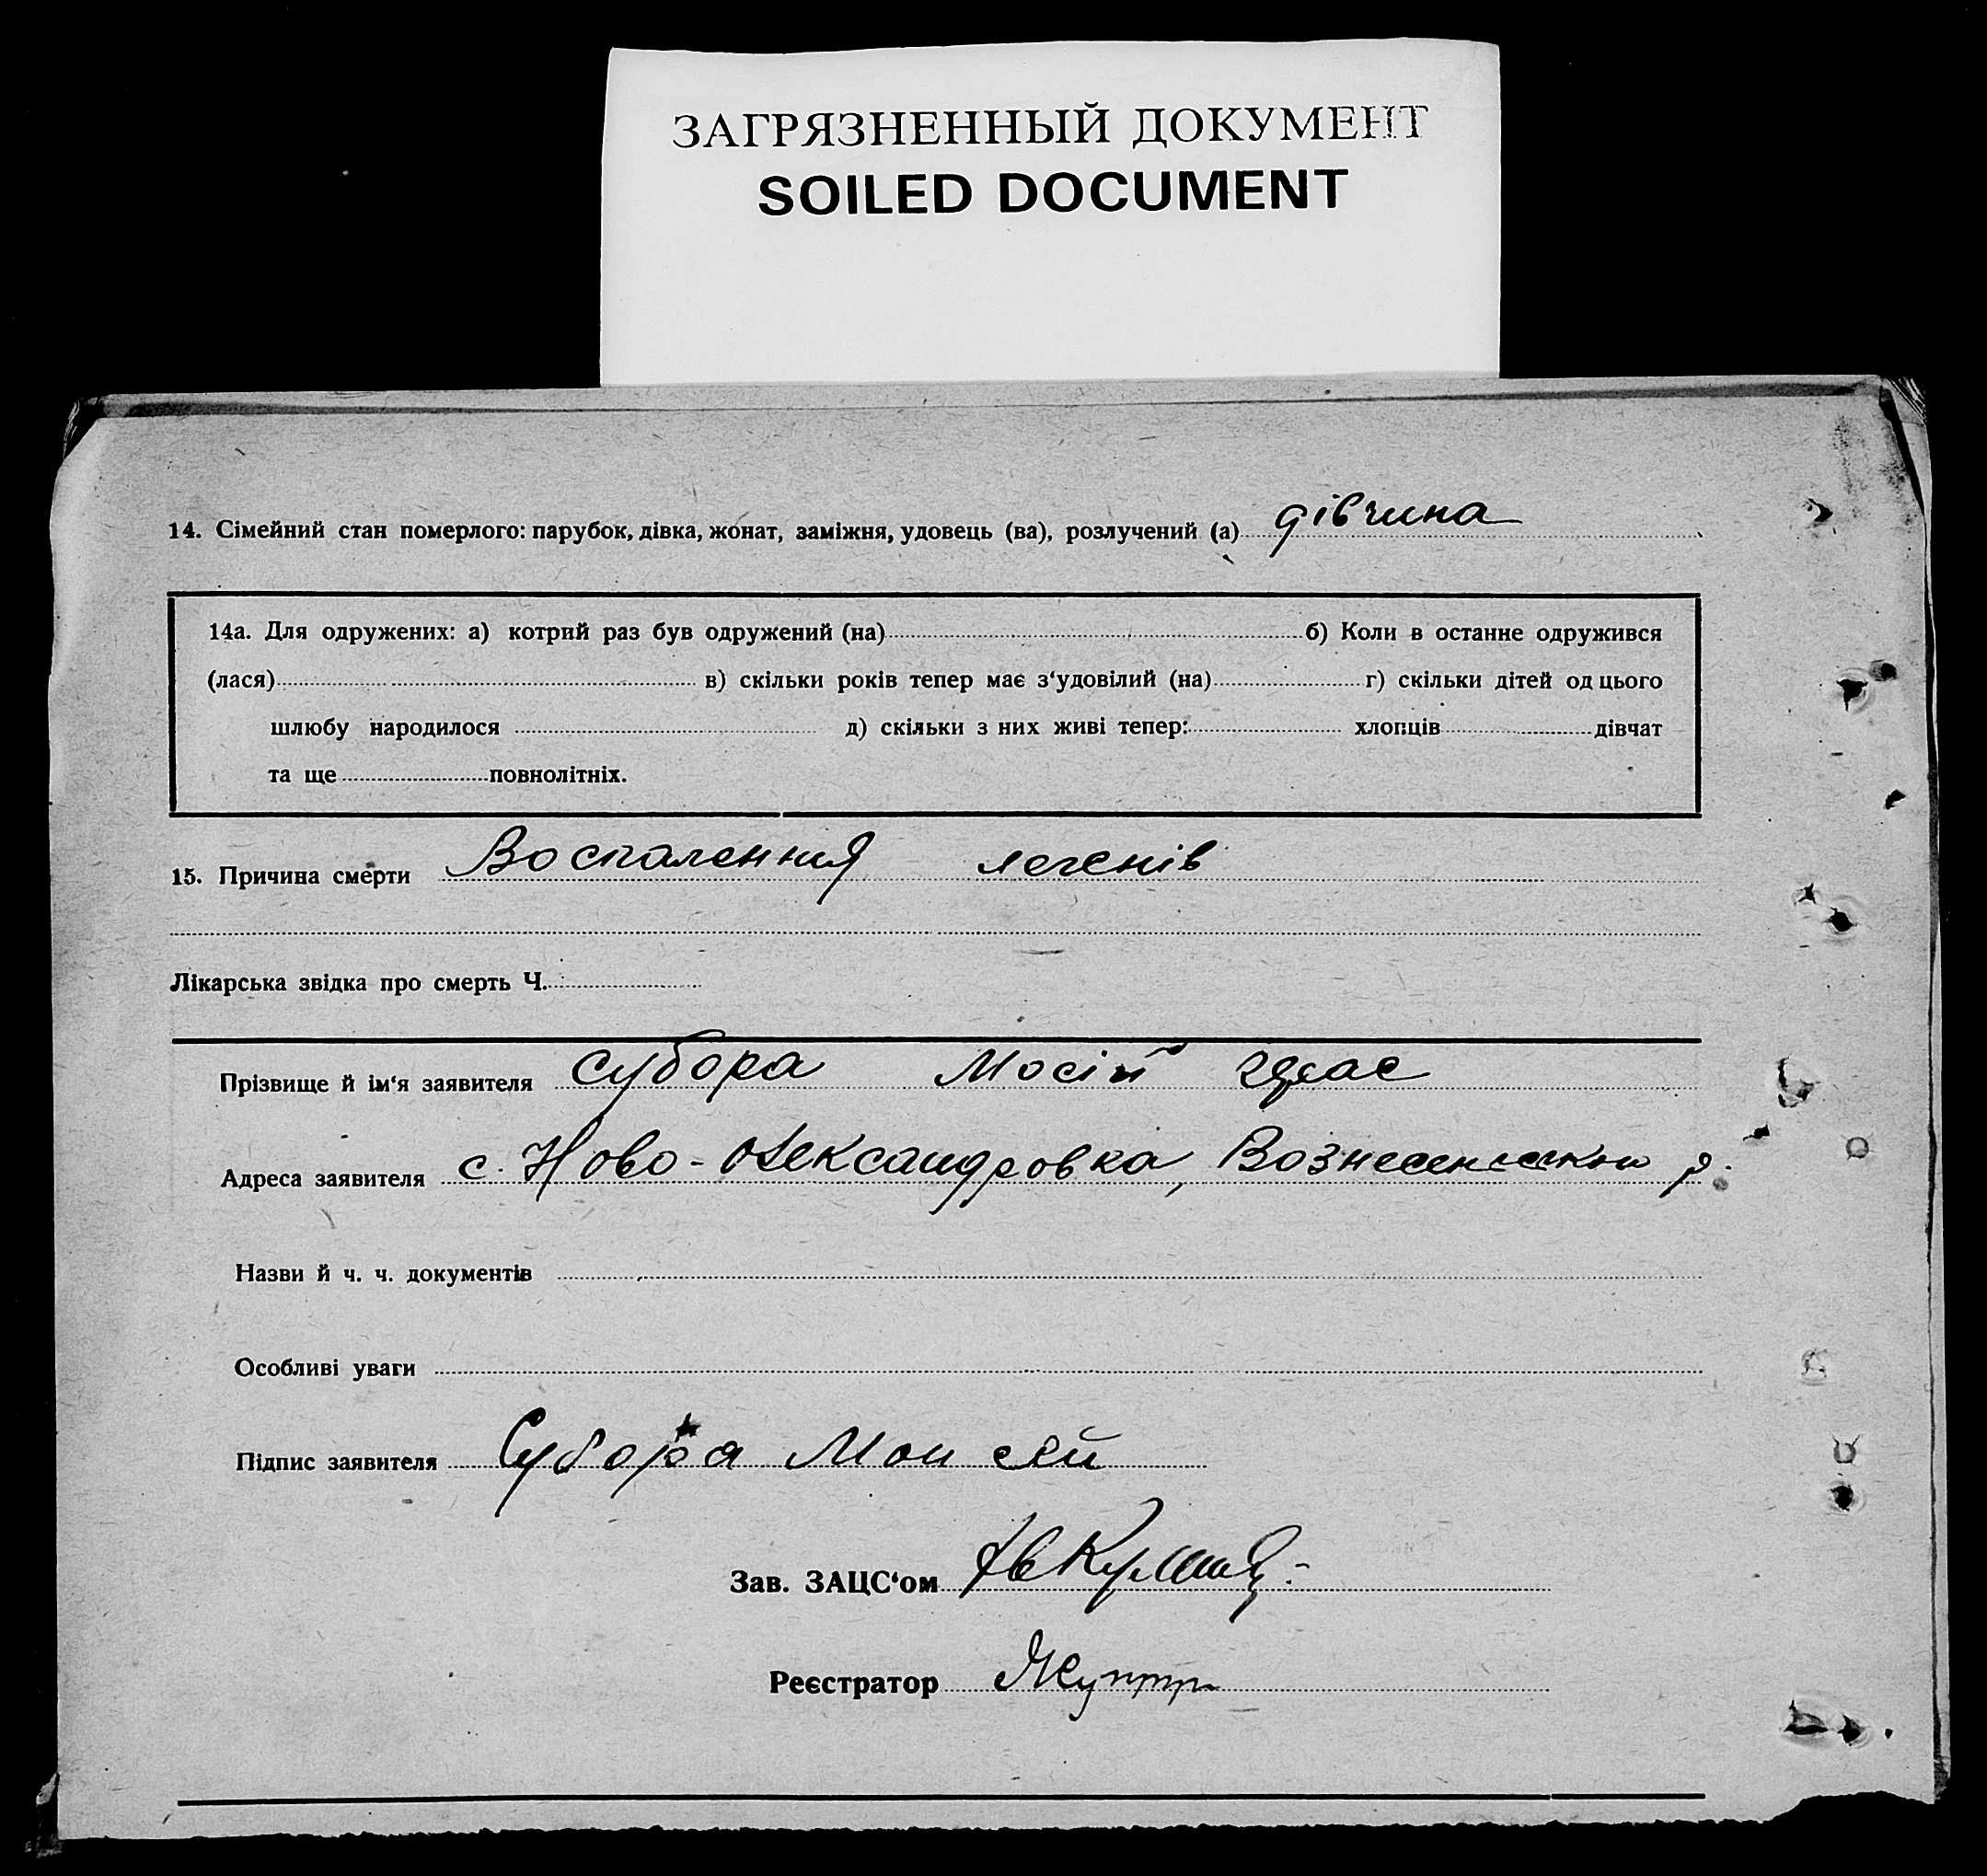 ЗАГРЯЗНЕННЫЙ ДОКУМЕНТ
SOILED DOCUMENT
14. Сімейний стан померлого: парубок, дівка, жонат, заміжня, удовець (ва), розлучений (а) дівчина
14а. Для одружених: а) котрий раз був одружений (на) б) Коли в останнє одружився
(лася) в) скільки років тепер має з‘удовілий (на) г) скільки дітей од цього
шлюбу народилося д) скільки з них живі тепер: хлопців дівчат
та ще повнолітніх.
15. Причина смерти Воспалення легенів
Лікарська звідка про смерть Ч.
Прізвище й ім‘я заявителя Субора Мосій
Адреса заявителя с. Ново-Олександровка, Вознесенськ р.
Назви й ч. ч. документів
Особливі уваги
Підпис заявителя Субора Моисей
Зав. ЗАЦС‘ом
Реєстратор